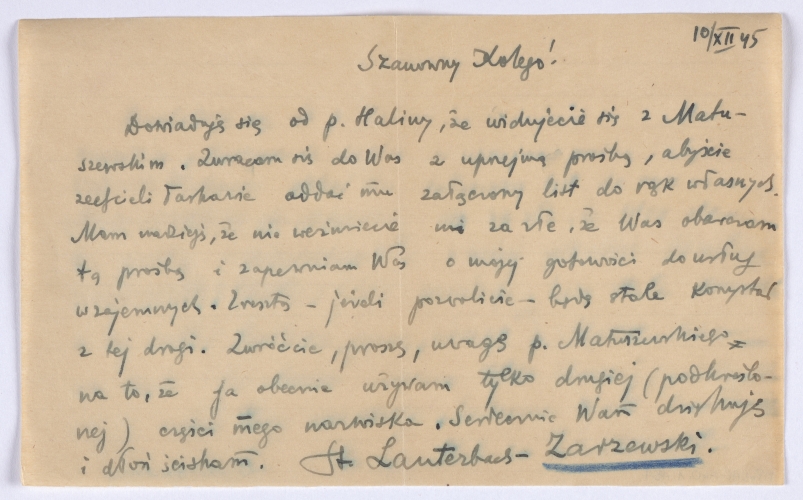 10/XII 45
Szanowny Kolego!
Dowiaduję się od p. Haliny, że widujecie się z Matu-
szewskim. Zwracam się do Was z uprzejmą prośbą, abyście
zechcieli łaskawie oddać mu załączony list do rąk własnych.
Mam nadzieję, że nie weźmiecie mi za złe, że Was obarczam
tą prośbą i zapewniam Was o mojej gotowości do usług
wzajemnych. Zresztą – jeżeli pozwolicie – będę stale korzystał
z tej drogi. Zwróćcie, proszę, uwagę p. Matuszewskiego
na to, że ja obecnie używam tylko drugiej (podkreślo-
nej) części mego nazwiska. Serdecznie Wam dziękuję
i dłoń ściskam. St. Lauterbach-Zarzewski.